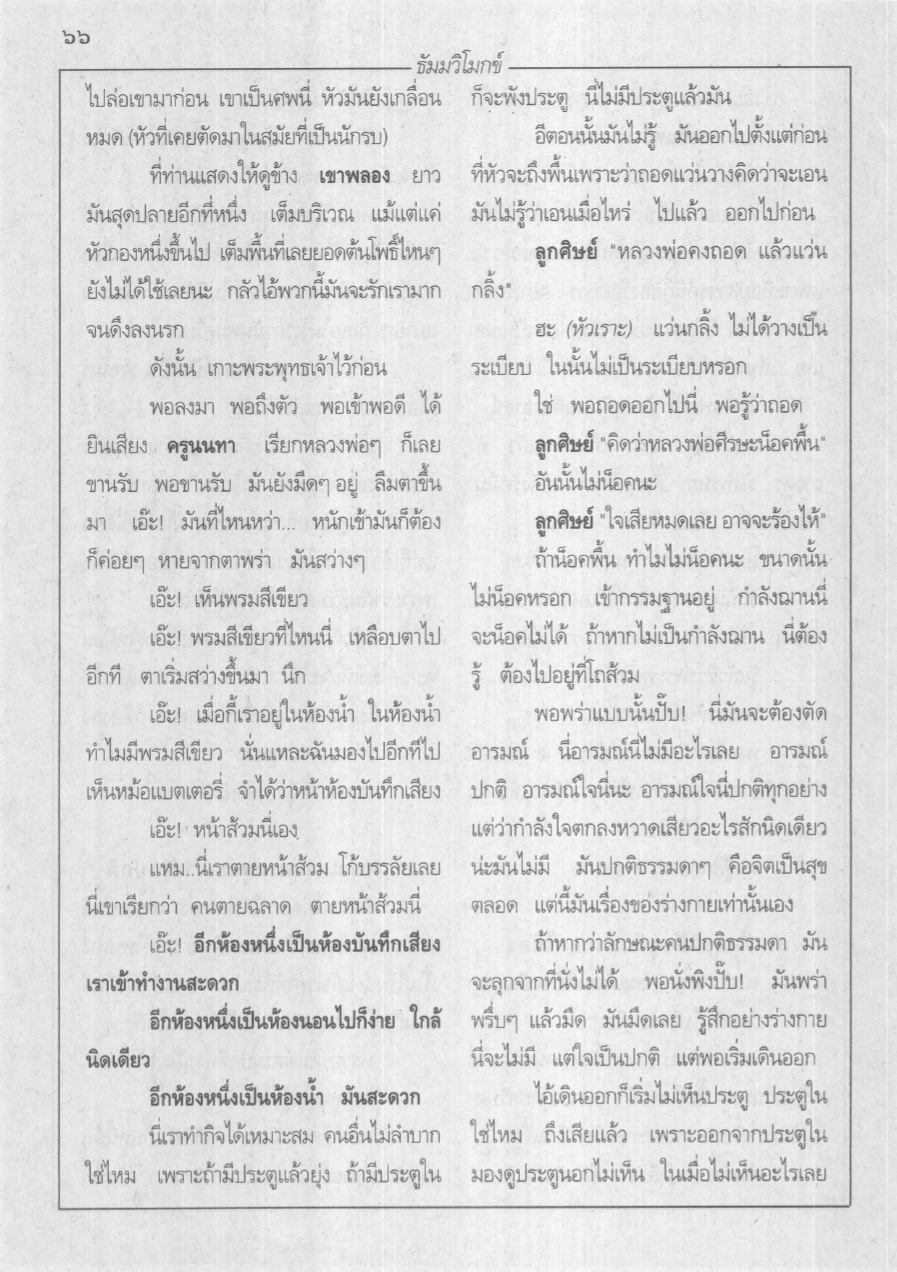 ๖๖
ธัมมวิโมกข์
ไปล่อเขามาก่อน เขาเป็นศพนี่ หัวมันยังเกลื่อน
หมด (หัวที่เคยตัดมาในสมัยที่เป็นนักรบ)
ที่ท่านแสดงให้ดูข้าง เขาพลอง ยาว
มันสุดปลายอีกที่หนึ่ง เต็มบริเวณ แม้แต่แค่
หัวกองหนึ่งขึ้นไป เต็มพื้นที่เลยยอดต้นโพธิ์ไหนๆ
ยังไม่ได้ใช้เลยนะ กลัวไอ้พวกนี้มันจะรักเรามาก
จนดึงลงนรก
ดังนั้น เกาะพระพุทธเจ้าไว้ก่อน
พอลงมา พอถึงตัว พอเข้าพอดี ได้
ยินเสียง ครูนนทา เรียกหลวงพ่อๆ ก็เลย
ขานรับ พอขานรับ มันยังมืดๆ อยู่ ลืมตาขึ้น
มา เอ๊ะ! มันที่ไหนหว่า... หนักเข้ามันก็ต้อง
ก็ค่อยๆ หายจากตาพร่า มันสว่างๆ
เอ๊ะ! เห็นพรมสีเขียว
เอ๊ะ! พรมสีเขียวที่ไหนนี่ เหลือบตาไป
อีกที ตาเริ่มสว่างขึ้นมา นึก
เอ๊ะ! เมื่อกี้เราอยู่ในห้องน้ำ ในห้องน้ำ
ทำไมมีพรมสีเขียว นั่นแหละฉันมองไปอีกทีไป
เห็นหม้อแบตเตอรี่ จำได้ว่าหน้าห้องบันทึกเสียง
เอ๊ะ! หน้าส้วมนี่เอง
แหม..นี่เราตายหน้าส้วม โก้บรรลัยเลย
นี่เขาเรียกว่า คนตายฉลาด ตายหน้าส้วมนี่
เอ๊ะ! อีกห้องหนึ่งเป็นห้องบันทึกเสียง
เราเข้าทำงานสะดวก
อีกห้องหนึ่งเป็นห้องนอนไปก็ง่าย ใกล้
นิดเดียว
อีกห้องหนึ่งเป็นห้องน้ำ มันสะดวก
นี่เราทำกิจได้เหมาะสม คนอื่นไม่ลำบาก
ใช่ไหม เพราะถ้ามีประตูแล้วยุ่ง ถ้ามีประตูใน
ก็จะพังประตู นี่ไม่มีประตูแล้วมัน
อีตอนนั้นมันไม่รู้ มันออกไปตั้งแต่ก่อน
ที่หัวจะถึงพื้นเพราะว่าถอดแว่นวางคิดว่าจะเอน
มันไม่รู้ว่าเอนเมื่อไหร่ ไปแล้ว ออกไปก่อน
ลูกศิษย์ "หลวงพ่อคงถอด แล้วแว่น
กลิ้ง"
ฮะ (หัวเราะ) แว่นกลิ้ง ไม่ได้วางเป็น
ระเบียบ ในนั้นไม่เป็นระเบียบหรอก
ใช่ พอถอดออกไปนี่ พอรู้ว่าถอด
ลูกศิษย์ "คิดว่าหลวงพ่อศีรษะน็อคพื้น"
อันนั้นไม่น็อคนะ
ลูกศิษย์ "ใจเสียหมดเลย อาจจะร้องไห้"
ถ้าน็อคพื้น ทำไมไม่น็อคนะ ขนาดนั้น
ไม่น็อคหรอก เข้ากรรมฐานอยู่ กำลังฌานนี่
จะน็อคไม่ได้ ถ้าหากไม่เป็นกำลังฌาน นี่ต้อง
รู้ ต้องไปอยู่ที่โถส้วม
พอพร่าแบบนั้นปั๊บ! นี่มันจะต้องตัด
อารมณ์ นี่อารมณ์นี่ไม่มีอะไรเลย อารมณ์
ปกติ อารมณ์ใจนี่นะ อารมณ์ใจนี่ปกติทุกอย่าง
แต่ว่ากำลังใจตกลงหวาดเสียวอะไรสักนิดเดียว
น่ะมันไม่มี มันปกติธรรมดาๆ คือจิตเป็นสุข
ตลอด แต่นี้มันเรื่องของร่างกายเท่านั้นเอง
ถ้าหากว่าลักษณะคนปกติธรรมดา มัน
จะลุกจากที่นั่งไม่ได้ พอนั่งพิงปั๊บ! มันพร่า
พรึ่บๆ แล้วมืด มันมืดเลย รู้สึกอย่างร่างกาย
นี่จะไม่มี แต่ใจเป็นปกติ แต่พอเริ่มเดินออก
ไอ้เดินออกก็เริ่มไม่เห็นประตู ประตูใน
ใช่ไหม ถึงเสียแล้ว เพราะออกจากประตูใน
มองดูประตูนอกไม่เห็น ในเมื่อไม่เห็นอะไรเลย